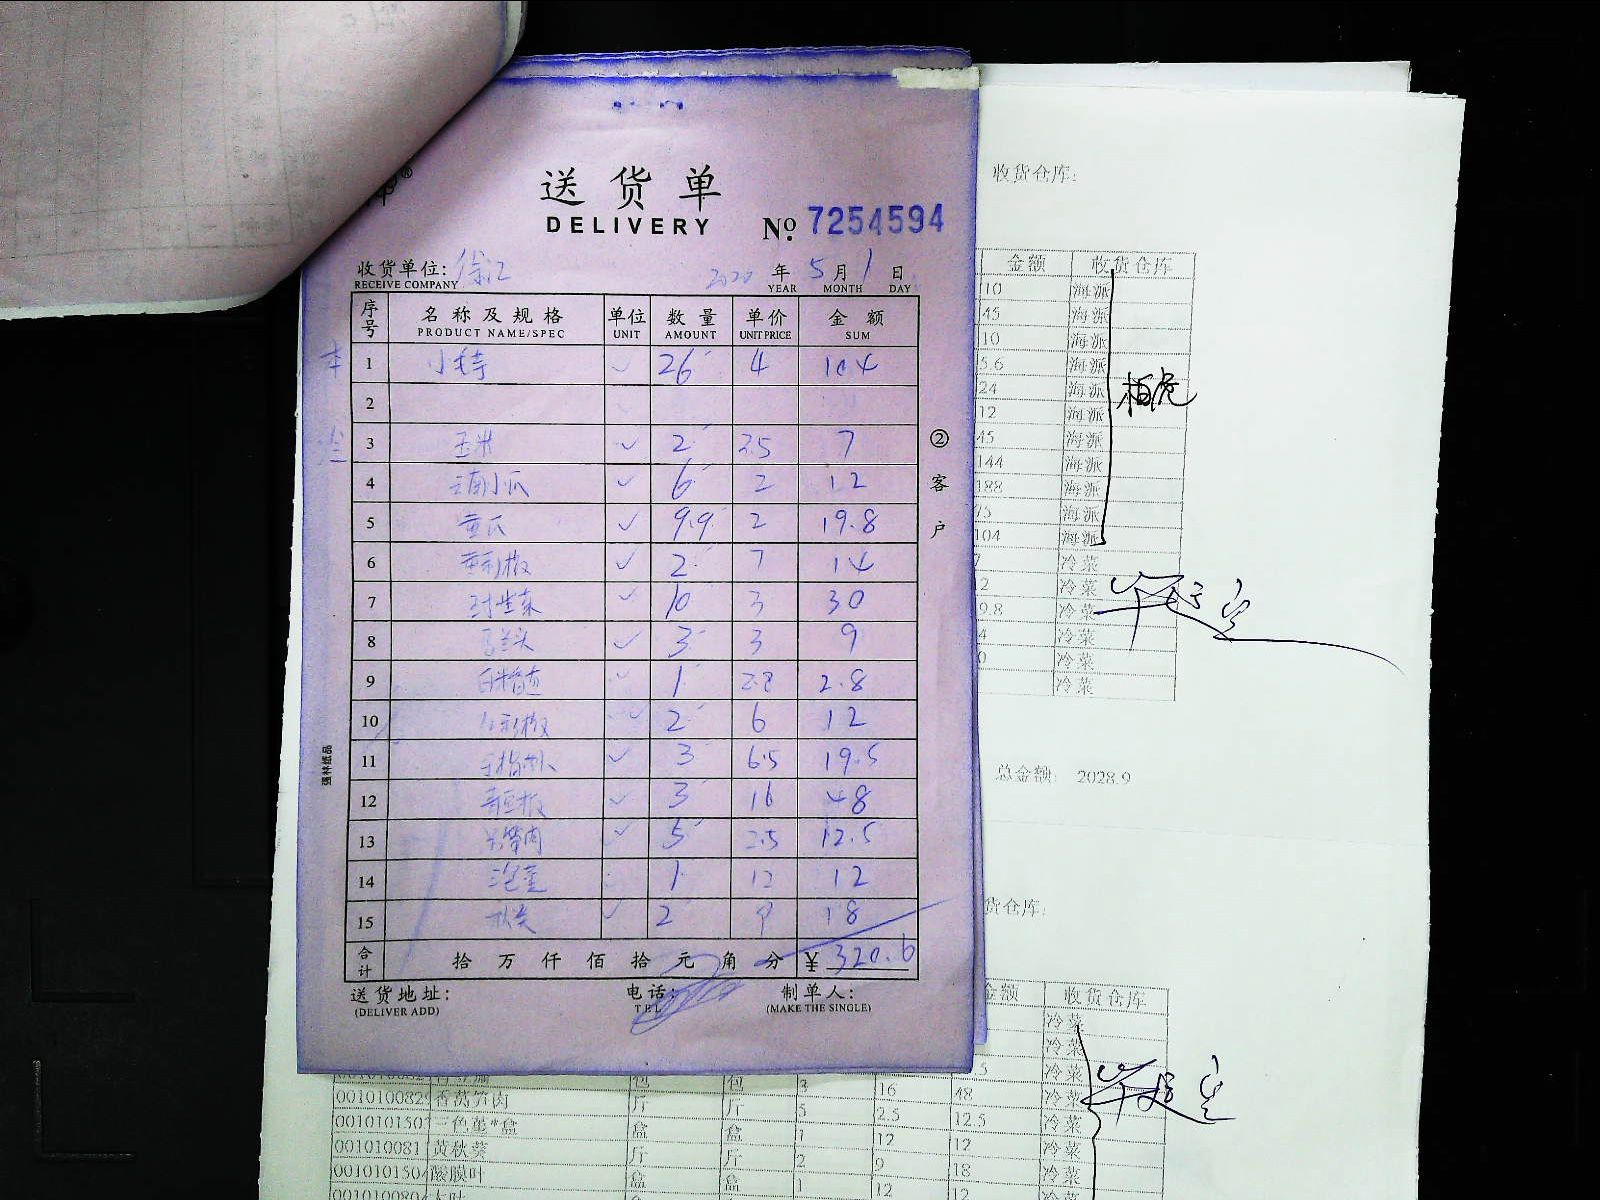 送货单
DELIVERY
№ 7254594
收货单位: 徐汇 2020 年 5 月 1 日
RECEIVE COMPANY YEAR MONTH DAY
序号 名称及规格 单位 数量 单价 金额
PRODUCT NAME/SPEC UNIT AMOUNT UNIT PRICE SUM
1 26 4 104
2
3 玉米 2 3.5 7
4 云南小瓜 6 2 12
5 黄瓜 9.9 2 19.8
6 黄彩椒 2 7 14
7 10 3 30
8 马兰头 3 3 9
9 1 2.8 2.8
10 红彩椒 2 6 12
11 3 6.5 19.5
12 3 16 48
13 5 2.5 12.5
14 1 12 12
15 2 9 18
合计 拾 万 仟 佰 拾 元 角 分 ¥ 320.6
送货地址: 电话: 制单人:
(DELIVER ADD) TEL (MAKE THE SINGLE)
② 客户
强林纸品
收货仓库:
金额 收货仓库
10 海派
45 海派
10 海派
5.6 海派
24 海派
12 海派
45 海派
144 海派
188 海派
75 海派
104 海派
7 冷菜
2 冷菜
9.8 冷菜
4 冷菜
0 冷菜
冷菜
总金额: 2028.9
货仓库:
金额 收货仓库
冷菜
冷菜
.5 冷菜
包 包 3 16 48 冷菜
001010082 香莴笋肉 斤 斤 5 2.5 12.5 冷菜
001010150 三色堇*盒 盒 盒 1 12 12 冷菜
001010081 黄秋葵 斤 斤 2 9 18 冷菜
001010150 酸膜叶 盒 盒 1 12 12 冷菜